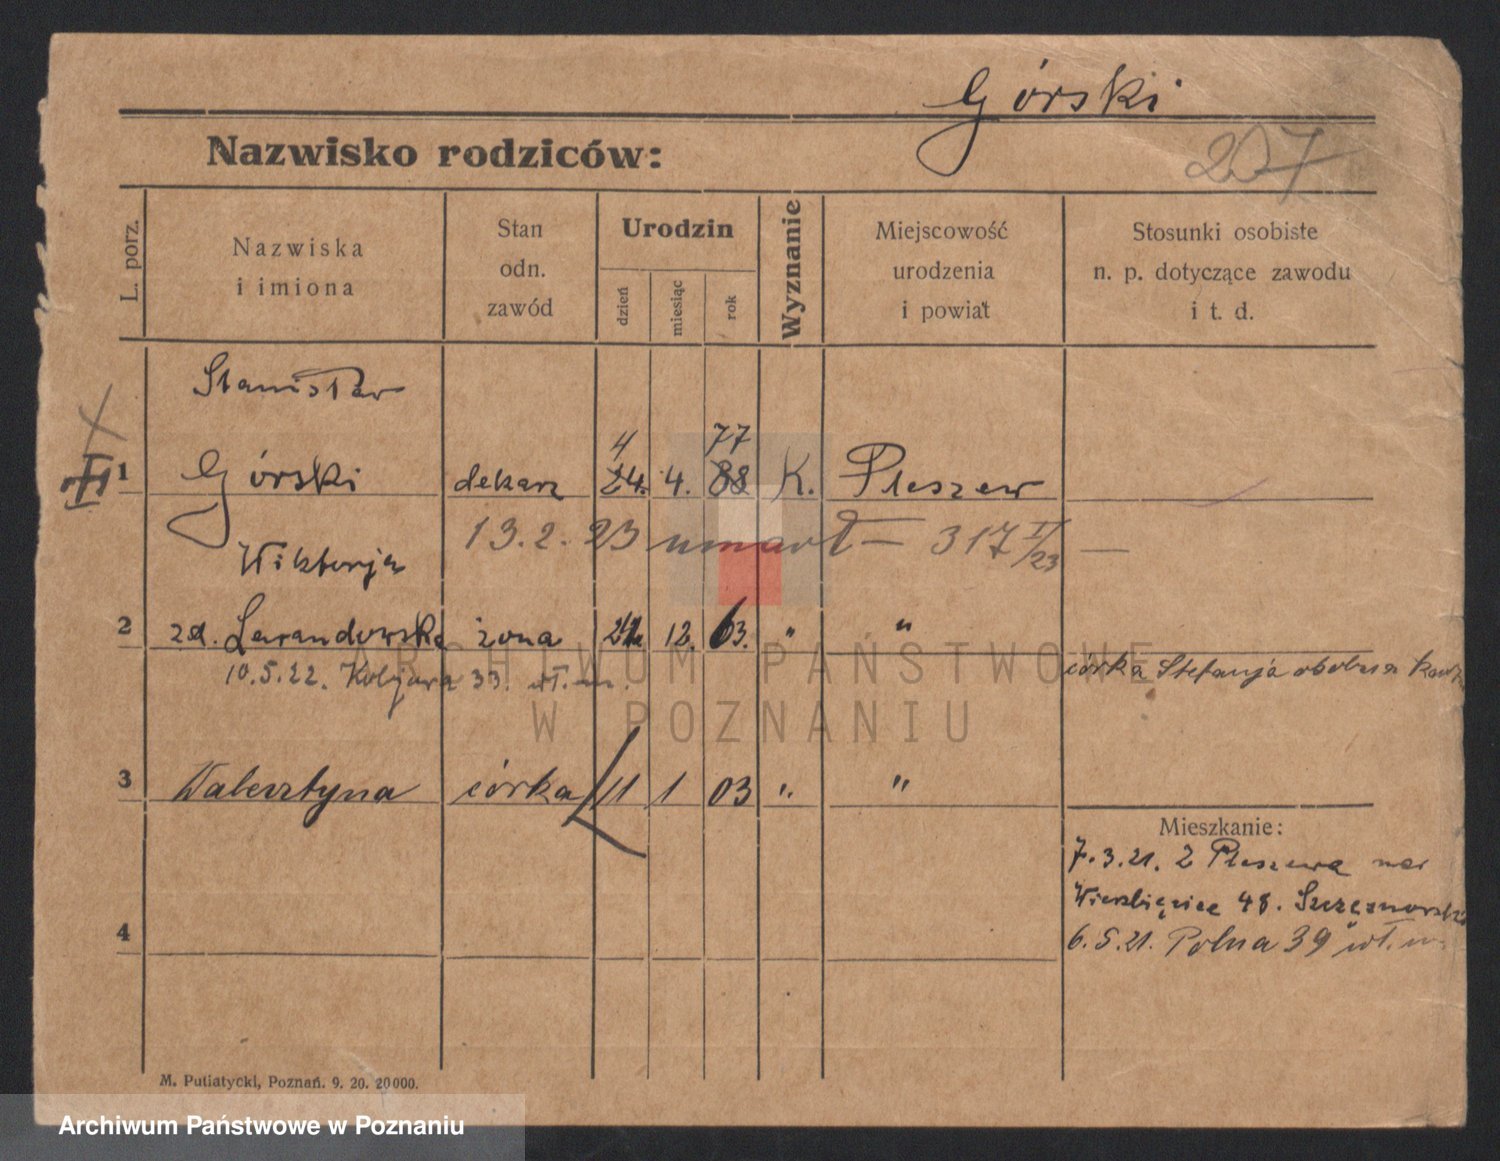 Górski
Nazwisko rodziców:
207
L. porz.
Nazwiska
i imiona
Stan
odn.
zawód
Urodzin
dzień
miesiąc
rok
Wyznanie
Miejscowość
urodzenia
i powiat
Stosunki osobiste
n. p. dotyczące zawodu
i t. d.
Stanisław
4 77
1 Górski dekarz 24. 4. 88 K. Pleszew
13.2.23 umarł — 317 I/23 —
Wiktorja
2 zd. Lewandowska żona 12. 63. " "
10.5.22. 33. wł. m.
córka Stefanja
3 córka 11 1 03 " "
Mieszkanie:
7.3.21. Z Pleszewa na
Wierzbięcice 48.
4
6.5.21. Polna 39 wł. m.
M. Putiatycki, Poznań. 9. 20. 20000.
ARCHIWUM PAŃSTWOWE
W POZNANIU
Archiwum Państwowe w Poznaniu